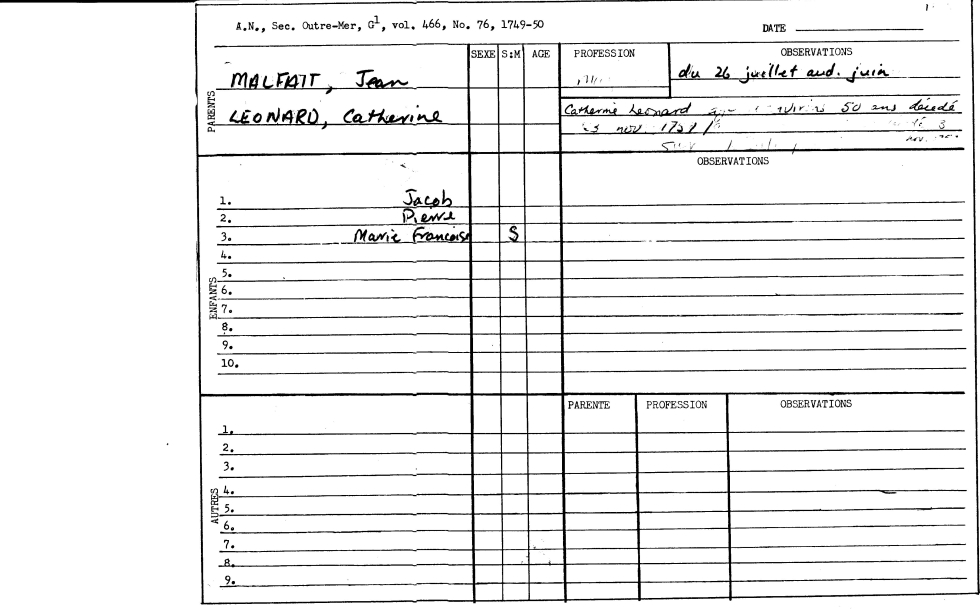 A.N., Sec. Outre-Mer, G1, vol. 466, No. 76, 1749-50
DATE
SEXE S:M AGE PROFESSION OBSERVATIONS
PARENTS
MALFAIT, Jean
du 26 juillet aud. juin
LEONARD, Catherine
Catherine Leonard 50 ans décédé
nov 3
OBSERVATIONS
ENFANTS
1. Jacob
2. Pierre
3. Marie Francoise S
4.
5.
6.
7.
8.
9.
10.
PARENTE PROFESSION OBSERVATIONS
AUTRES
1.
2.
3.
4.
5.
6.
7.
8.
9.